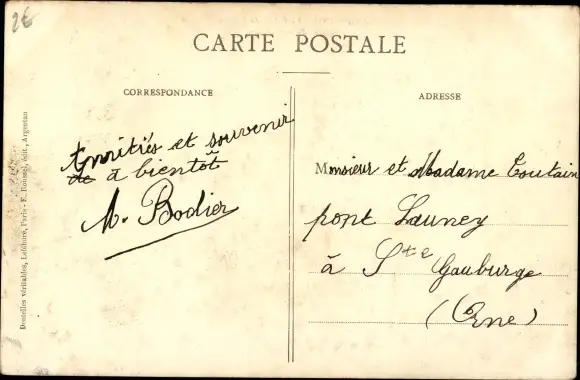 2€
CARTE POSTALE
CORRESPONDANCE
ADRESSE
Amitiés et souvenir
de à bientôt
M. Bodier
Monsieur et Madame Coutain
pont Launey
à Ste Gauburge
(Orne)
Dentelles véritables, Lefébure, Paris - E. Roussel, édit., Argentan